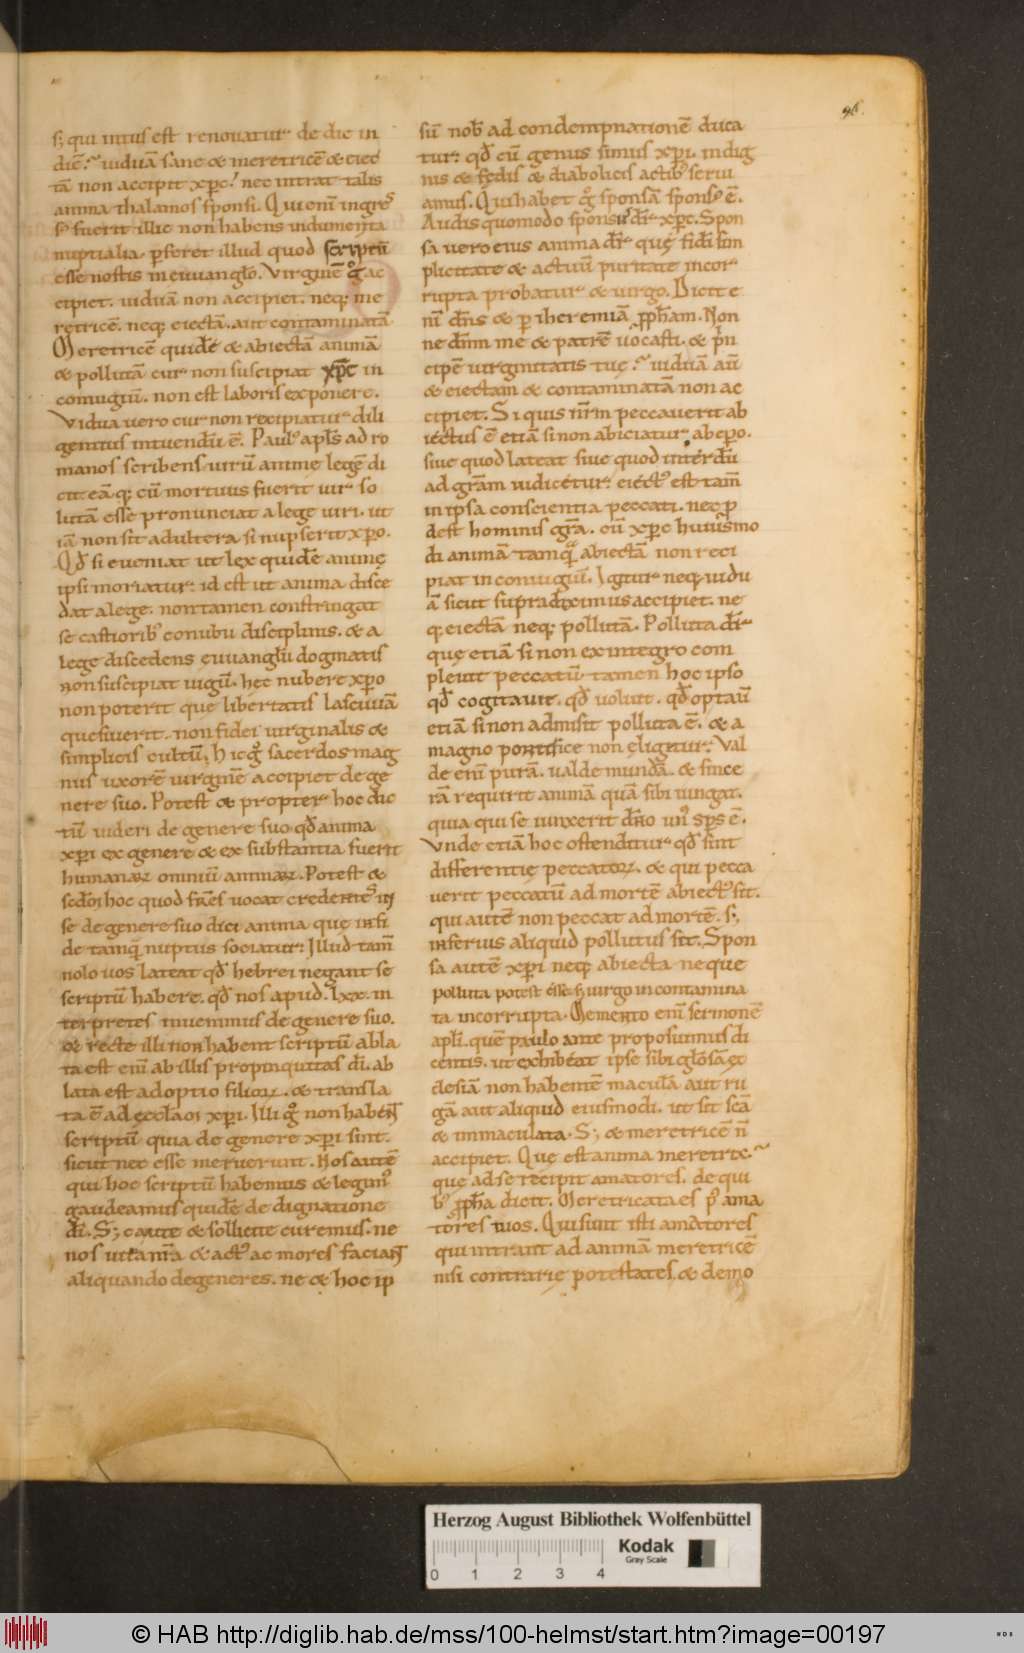 96.
s; qui intus est renouatur de die in
diē. uiduā sane & meretricē & eiec
tā non accipit xp̄c. nec intrat talis
anima thalamos sponsi. Qui eni͂ ingres
sꝰ fuerit illic non habens indumenta
nuptialia. p̱feret illud quod scriptū
esse nostis in euuangl̄o. Virginē g̊ ac
cipiet. uiduā non accipiet. neq; me
retricē. neq; eiectā. aut contaminatā
Meretricē quidē & abiectā animā
& pollutā cur non suscipiat xp̄c in
coniugiū. non est laboris exponere.
Vidua uero cur non recipiatur dili
gentius intuendū ē. Paulꝰ apl̄s ad ro
manos scribens. uirū animę legē di
cit eā q; cū mortuus fuerit uir so
lutā esse pronunciat a lege uiri. ut
iā non sit adultera si nupserit xp̄o.
Qd̄ si eueniat ut lex quidē animę
ipsi moriatur. id est ut anima disce
dat a lege. non tamen constringat
se castiorib; conubii disciplinis. & a
lege discedens euuanglii dogmatis
non suscipiat iugū. hęc nubere xp̄o
non poterit quę libertatis lasciuiā
quesiuerit. non fidei uirginalis &
simplicis cultū. Hic g̊ sacerdos mag
nus uxorē uirginē accipiet de ge
nere suo. Potest & propter hoc dic
tū uideri de genere suo qd̄ anima
xp̄i ex genere & ex substantia fuerit
humanaꝝ omniū animaꝝ. Potest &
scd̄m hoc quod fr̄es uocat credentes in
se de genere suo dici anima quę in fi
de tamq̄ nuptiis sociatur. Illud tam̄
nolo uos lateat qd̄ hebrei negant se
scriptū habere. qd̄ nos apud. lxx. in
terpretes inuenimus de genere suo.
& recte illi non habent scriptū abla
ta est eni͂ ab illis propinquitas d̄i. ab
lata est adoptio filioꝝ. & transla
ta ē ad ęcclaɱ xp̄i. Illi g̊ non habent
scriptū quia de genere xp̄i sint.
sicut nec esse meruerunt. Nos autē
qui hoc scriptū habemus & legimꝰ
gaudeamus quidē de dignatione
d̄i. S; caute & sollicite curemus. ne
nos uita nr̄a & actꝰ ac mores faciant
aliquando degeneres. ne & hoc ip
sū nob̄ ad condempnationē duca
tur. qd̄ cū genus simus xp̄i. indig
nis & fędis & diabolicis actib; serui
amus. Qui habet g̊ sponsā sponsꝰ ē.
Audis quomodo sponsus dr̄ xp̄c. Spon
sa uero eius anima dr̄ quę fidei sim
plicitate & actuū puritate incor
rupta probatur & uirgo. Dicit e
ni͂ dn̄s & p̱ iheremiā p̱ph̄am. Non
ne dn̄m me & patrē uocasti. & prin
cipē uirginitatis tuę. uiduā aū
& eiectam & contaminatā non ac
cipiet. Si quis nr̄m peccauerit ab
iectus ē etiā si non abiciatur. ab ep̄o.
siue quod lateat siue quod interdū
ad grām iudicetur. eiectꝰ est tam̄
in ipsa conscientia peccati. nec p̱
dest hominis gr̄a. cū xp̄c huiusmo
di animā tamq̄ abiectā non reci
piat in coniugiū. Igitur neq; uidu
ā sicut supradiximus accipiet. ne
q; eiectā neq; pollutā. Polluta dr̄
quę etiā si non ex integro com
pleuit peccatū tamen hoc ipso
qd̄ cogitauit. qd̄ uoluit. qd̄ optauit
etiā si non admisit polluta ē. & a
magno pontifice non ęligitur. Val
de eni͂ purā. ualde mundā. & since
rā requirit animā quā sibi iungat.
quia qui se iunxerit dn̄o unꝰ sp̄s ē.
Vnde etiā hoc ostenditur qd̄ sint
differentię peccatoꝝ. & qui pecca
uerit peccatū ad mortē abiectꝰ sit.
qui autē non peccat ad mortē. s;
inferius aliquid pollutus sit. Spon
sa autē xp̄i neq; abiecta neque
polluta potest esse. s; uirgo incontamina
ta incorrupta. Memento eni͂ sermonē
apl̄i. quē paulo ante proposuimus di
centis. ut exhibeat ipse sibi gl̄osā ec
clesiā non habentē maculā aut ru
gā aut aliquid eiusmodi. ut sit sc̄a
& immaculata. S; & meretricē n̄
accipiet. Quę est anima meretrix.
quę ad se recipit amatores. de qui
b; p̱ph̄a dicit. Meretricata es p̱ ama
tores tuos. Qui sunt isti amatores
qui intrant ad animā meretricē
nisi contrarię potestates. & demo
Herzog August Bibliothek Wolfenbüttel
Kodak
Gray Scale
0 1 2 3 4
© HAB http://diglib.hab.de/mss/100-helmst/start.htm?image=00197